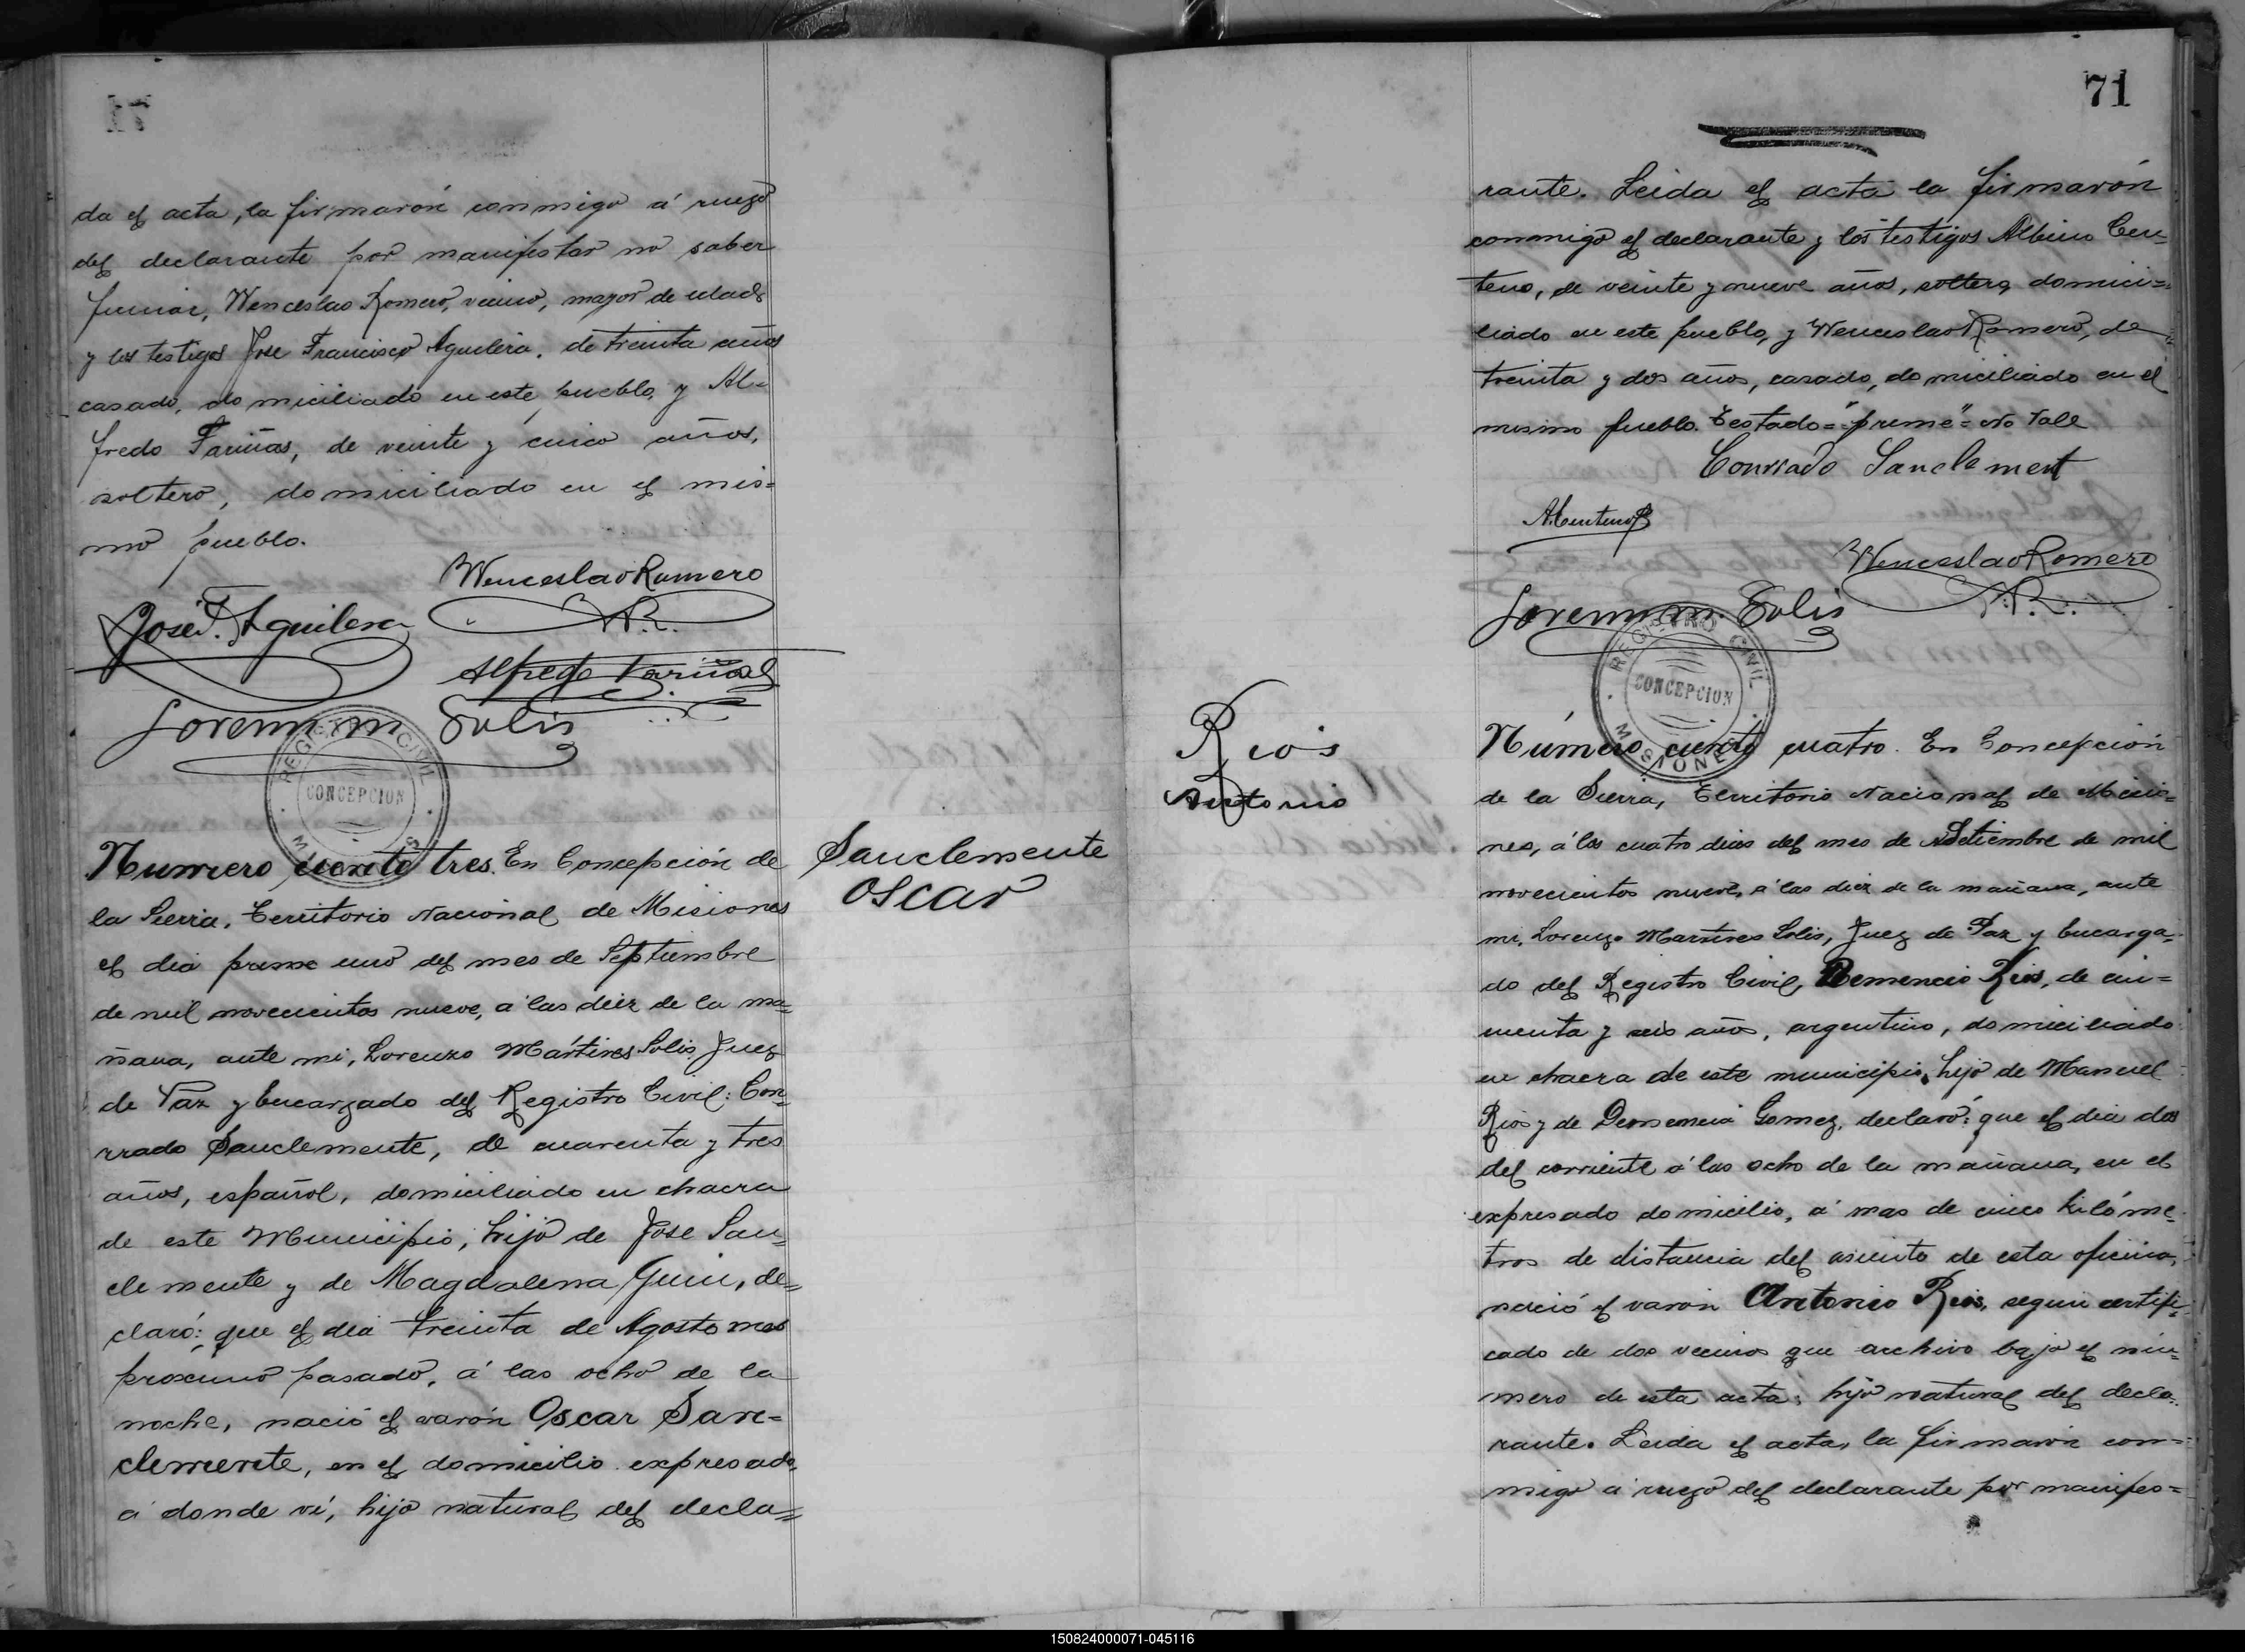 da el acta, la firmarón conmigo á ruego
del declarante por manifestar no saber
firmar, Wenceslao Romero, vecino, mayor de edad
y los testigos Jose Francisco Aguilera, de treinta años
casado, domiciliado en este pueblo, y Al-
fredo Fariñas, de veinte y cinco años,
soltero, domiciliado en el mis=
mo pueblo.
Wenceslao Romero
W.R.
José F. Aguilera
Alfredo Fariñas
Solis
REGISTRO CIVIL
CONCEPCION
Numero ciento tres. En Concepción de
la Sierra, Territorio Nacional de Misiones
el dia prime uno del mes de Septiembre
de mil novecientos nueve, á las diez de la ma-
ñana, ante mi, Lorenzo Mártires Solis, Juez
de Paz y Encargado del Registro Civil: Con-
rrado Sanclemente, de cuarenta y tres
años, español, domiciliado en chacra
de este Municipio, hijo de Jose San-
clemente y de Magdalena, de-
claró: que el dia treinta de Agosto mes
proximo pasado, á las ocho de la
noche, nació el varón Oscar San-
clemente, en el domicilio expresado,
á donde ví, hijo natural del decla=
Sanclemente
Oscar
71
rante. Leida el acta la firmarón
conmigo el declarante y los testigos Albino Cen-
teno, de veinte y nueve años, soltero, domici=
liado en este pueblo, y Wenceslao Romero, de
treinta y dos años, casado, domiciliado en el
mismo pueblo. Testado="prime"=No Vale
Conrrado Sanclement
A. Centeno
Wenceslao Romero
W.R.
Solis
REGISTRO CIVIL
CONCEPCION
MISIONES
Rios
Antonio
Número ciento cuatro. En Concepción
de la Sierra, Territorio Nacional de Misio-
nes, á los cuatro dias del mes de Setiembre de mil
novecientos nueve, á las diez de la mañana, ante
mi, Lorenzo Martires Solis, Juez de Paz y Encarga-
do del Registro Civil, Rios, de cin=
cuenta y seis años, argentino, domiciliado
en chacra de este municipio, hijo de Manuel
Rios y de Demencia Gomez, declaró: que el dia dos
del corriente á las ocho de la mañana, en el
expresado domicilio, á mas de cinco kilóme-
tros de distancia del asiento de esta oficina,
nació el varón Antonio Rios, segun certifi-
cado de dos vecinos que archivo bajo el nú-
mero de esta acta; hijo natural del decla-
rante. Leida el acta, la firmarón con-
migo á ruego del declarante por manifes=